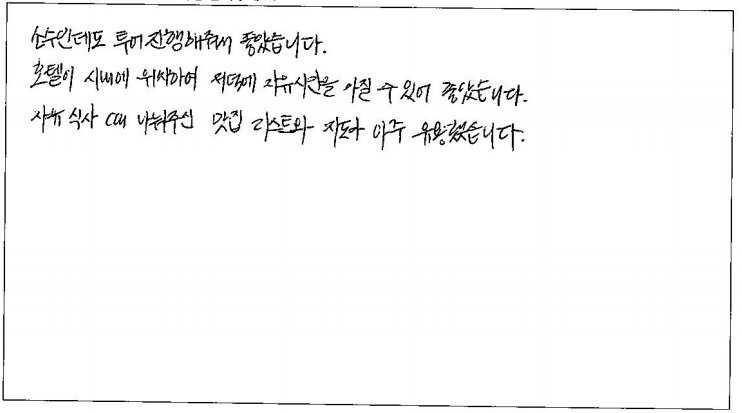 소수인데도 투어 진행해주셔서 좋았습니다.
호텔이 시내에 위치하여 저녁에 자유시간을 가질 수 있어 좋았습니다.
자유 식사 때 나눠주신 맛집 리스트와 지도가 아주 유용했습니다.